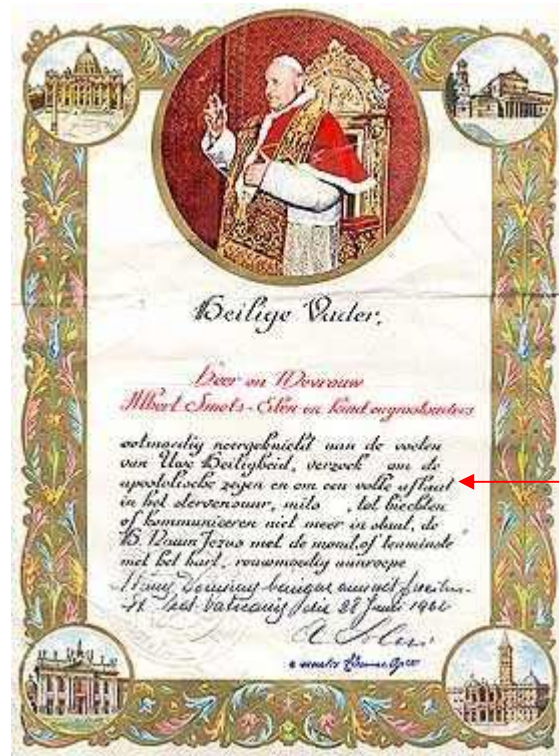 Heilige Vader,
Heer en Mevrouw
Albert Smets - Elen en kind en grootouders
ootmoedig neergeknield aan de voeten
van Uwe Heiligheid, verzoek om de
apostolische zegen en om een volle aflaat
in het stervensuur, mits , tot biechten
of kommuniceren niet meer in staat, de
H. Naam Jezus met de mond, of tenminste
met het hart, rouwmoedig aanroepe
benigne annuit
Vaticanis die 28 Junii